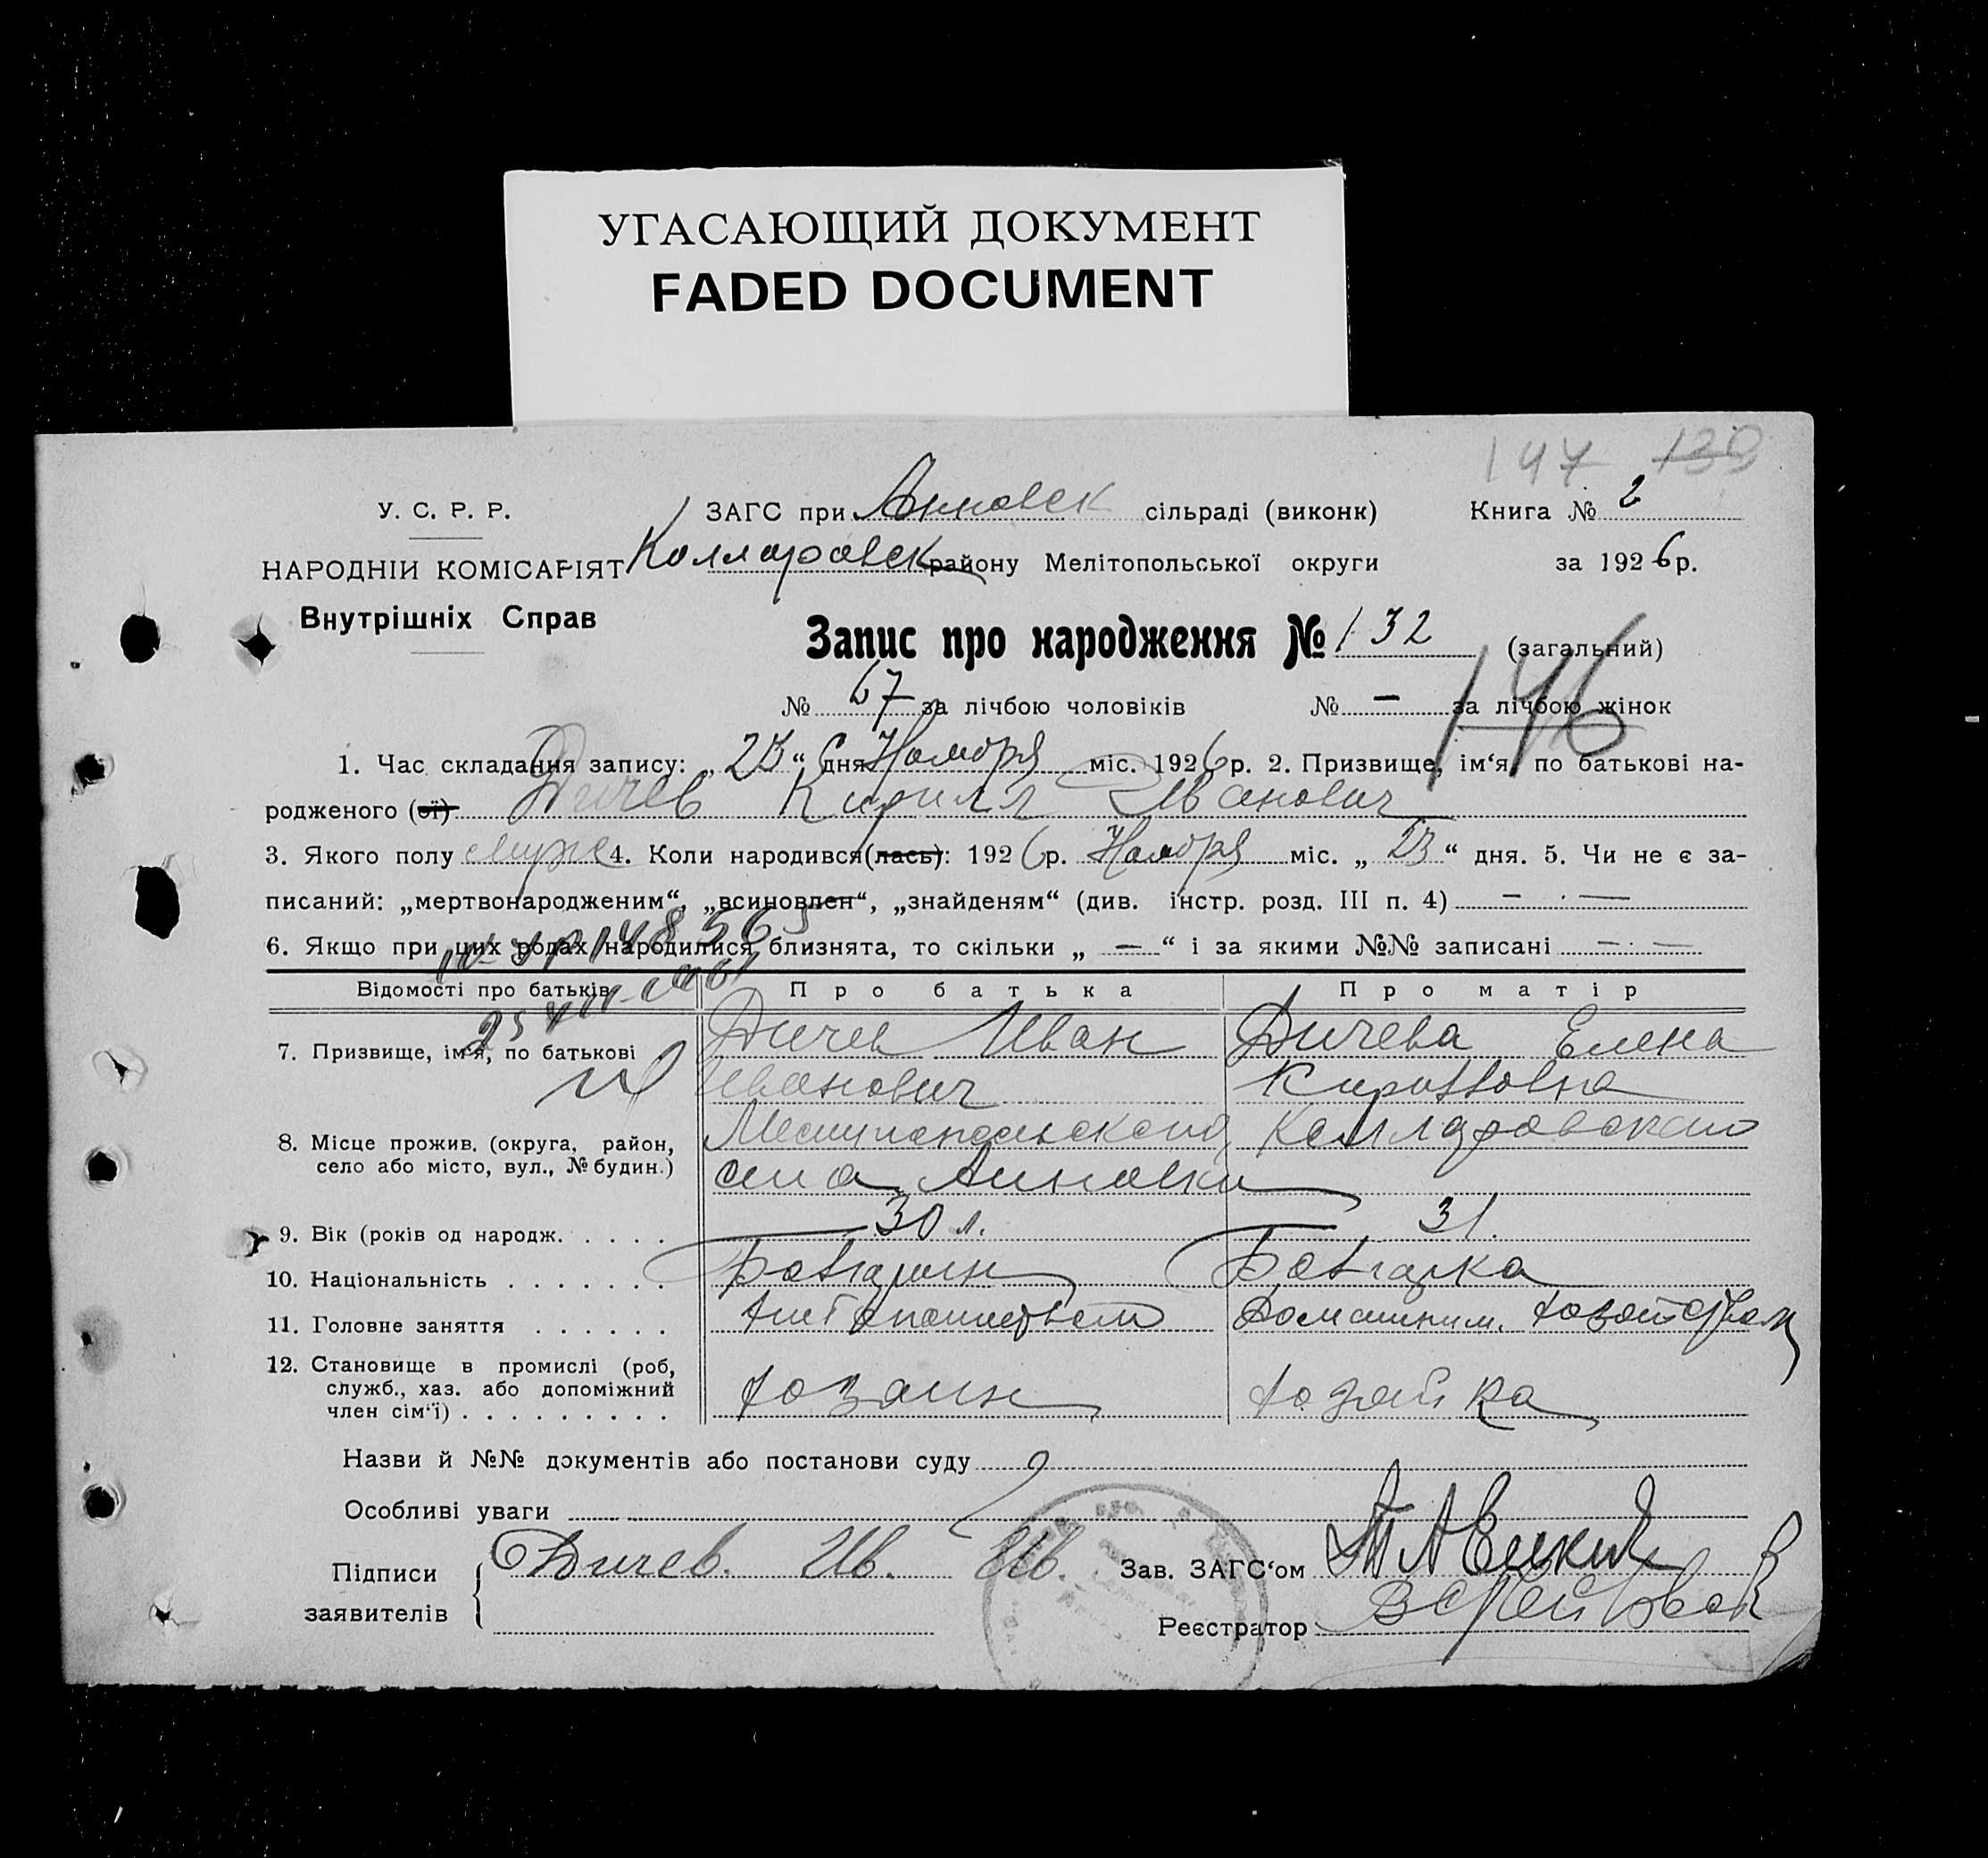 УГАСАЮЩИЙ ДОКУМЕНТ
FADED DOCUMENT
147 139
У. С. Р. Р. ЗАГС при Анновск сільраді (виконк) Книга № 2
НАРОДНІЙ КОМІСАРІЯТ Коларовск району Мелітопольської округи за 1926 р.
Внутрішніх Справ
Запис про народження № 132 (загальний)
146
№ 67 за лічбою чоловіків № — за лічбою жінок
1. Час складання запису: „23“ дня Ноября міс. 1926 р. 2. Призвище, ім‘я, по батькові на-
родженого (ої) Дичев Кирилл Иванович
3. Якого полу муж 4. Коли народився(лась): 1926 р. Ноября міс. „23“ дня. 5. Чи не є за-
писаний: „мертвонародженим“, „всиновлен“, „знайденям“ (див. інстр. розд. III п. 4) — · —
6. Якщо при цих родах народилися близнята, то скільки „ — “ і за якими №№ записані — · —
Відомості про батьків Про батька Про матір
7. Призвище, ім‘я, по батькові Дичев Иван Дичева Елена
Иванович Кирилловна
8. Місце прожив. (округа, район, Мелитопольского, Коларовского
село або місто, вул., № будин.) села Анновки
9. Вік (років од народж. . . . . 30 л. 31.
10. Національність . . . . . . . Болгарин Болгарка
11. Головне заняття . . . . . . Хлебопашеством Домашним. хозяйством
12. Становище в промислі (роб,
служб., хаз. або допоміжний хозяин хозяйка
член сім‘ї) . . . . . . . . .
Назви й №№ документів або постанови суду
Особливі уваги
Підписи Дичев. Ив. Ив. Зав. ЗАГС‘ом
заявителів Реєстратор